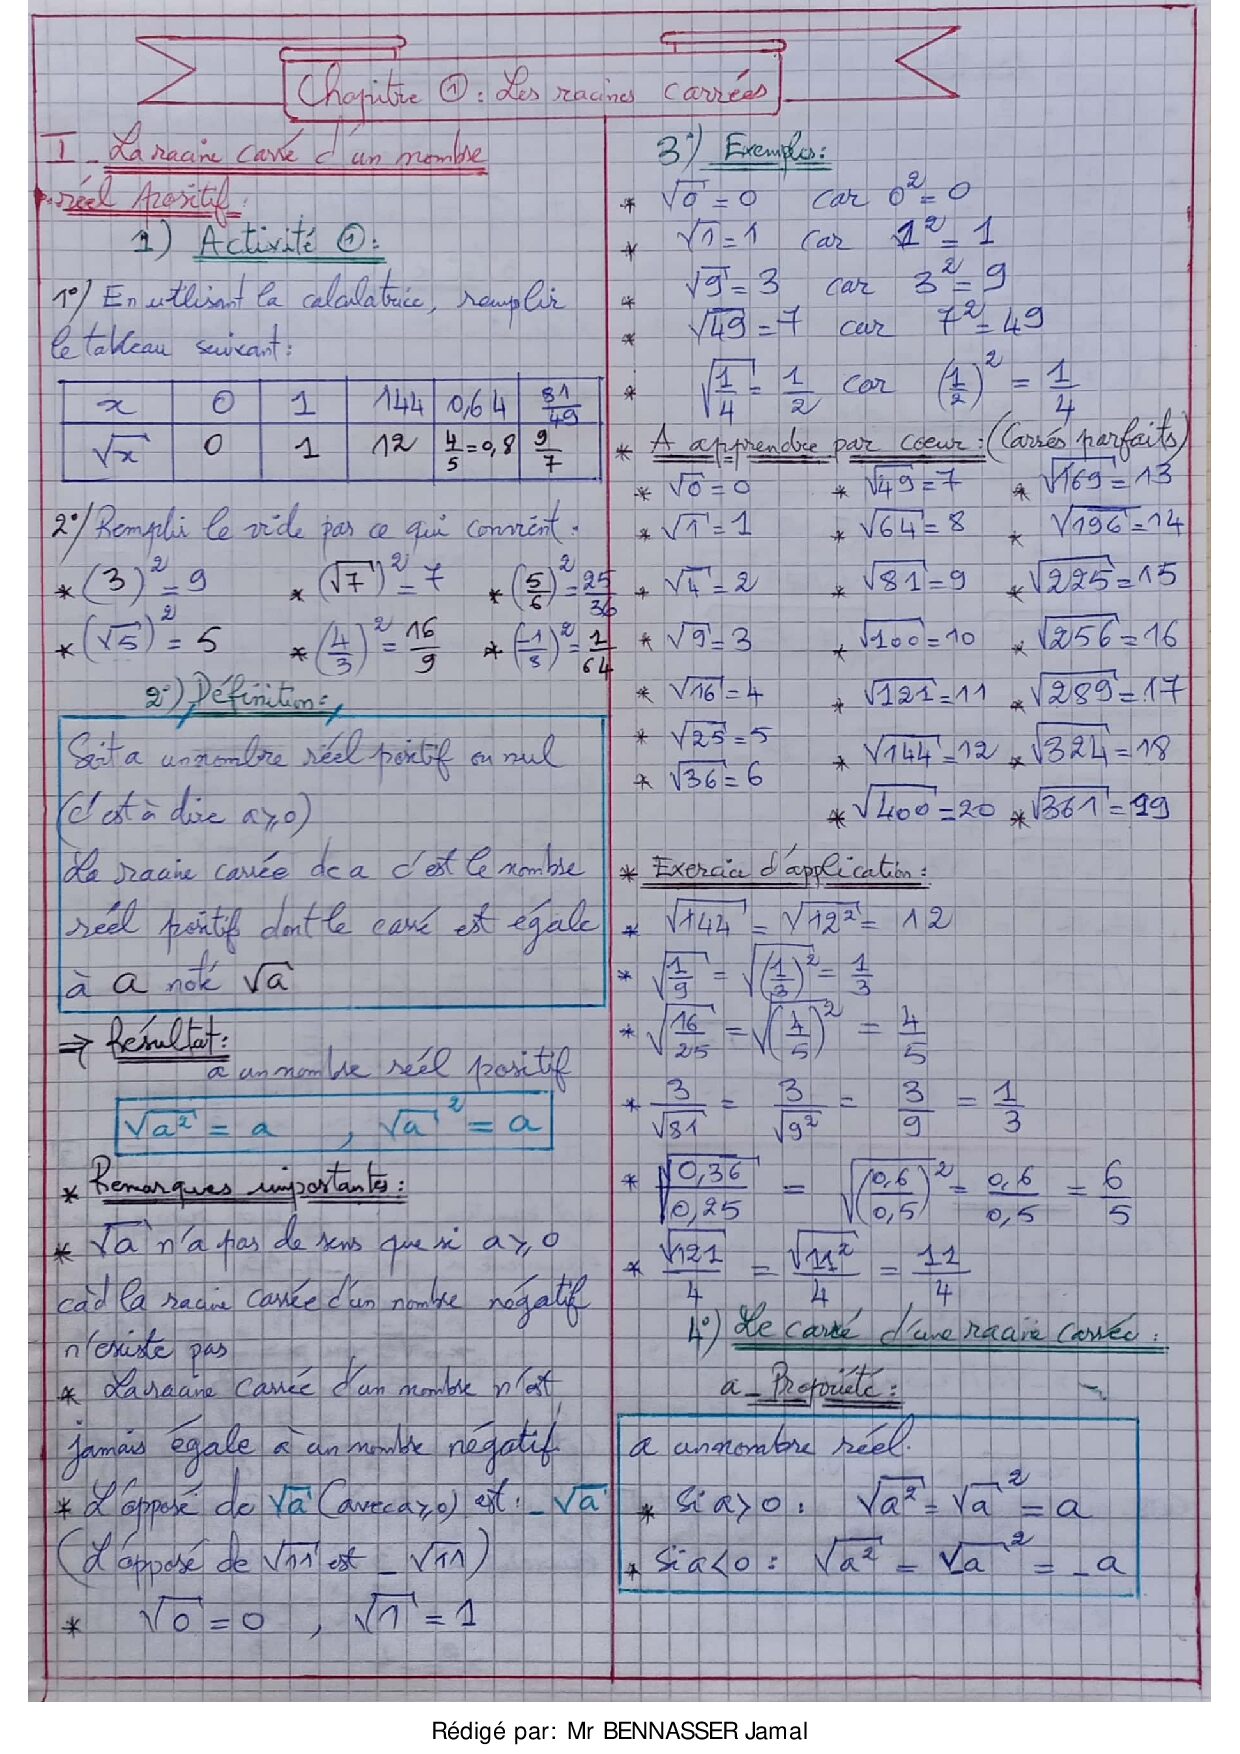 Chapitre ①: Les racines carrées
I - La racine carré d'un nombre
réel positif:
1) Activité ①:
1°/ En utilisant la calculatrice, remplir
le tableau suivant:
x 0 1 144 0,64 81/49
√x 0 1 12 4/5=0,8 9/7
2°/ Rempli le vide par ce qui convient.
* (3)²=9 * (√7)²=7 * (5/6)²=25/36
* (√5)²=5 * (4/3)²=16/9 * (-1/8)²=1/64
2°) Définition:
Soit a un nombre réel positif ou nul
(c'est à dire a⩾0)
La racine carrée de a c'est le nombre
réel positif dont le carré est égale
à a noté √a
⇒ Résultat:
a un nombre réél positif
√a² = a , √a² = a
* Remarques importantes:
* √a n'a pas de sens que si a⩾0
càd la racine carrée d'un nombre négatif
n'existe pas
* La racine carrée d'un nombre n'est
jamais égale à un nombre négatif
* L'opposé de √a (avec a⩾0) est: -√a
(L'opposé de √11 est -√11)
* √0 = 0 , √1 = 1
3°) Exemples:
* √0 = 0 car 0²=0
* √1 = 1 car 1²=1
* √9 = 3 car 3²=9
* √49 = 7 car 7²=49
* √1/4 = 1/2 car (1/2)² = 1/4
* A apprendre par coeur: (Carrés parfaits)
* √0=0 * √49=7 * √169=13
* √1=1 * √64=8 * √196=14
* √4=2 * √81=9 * √225=15
* √9=3 * √100=10 * √256=16
* √16=4 * √121=11 * √289=17
* √25=5 * √144=12 * √324=18
* √36=6
* √400=20 * √361=19
* Exercice d'application:
* √144 = √12² = 12
* √1/9 = √(1/3)² = 1/3
* √16/25 = √(4/5)² = 4/5
* 3/√81 = 3/√9² = 3/9 = 1/3
* √0,36/0,25 = √(0,6/0,5)² = 0,6/0,5 = 6/5
* √121/4 = √11²/4 = 11/4
4°) Le carré d'une racine carrée:
a - Propriété:
a un nombre réel.
* Si a>0: √a² = √a² = a
* Si a<0: √a² = √-a² = -a
Rédigé par: Mr BENNASSER Jamal